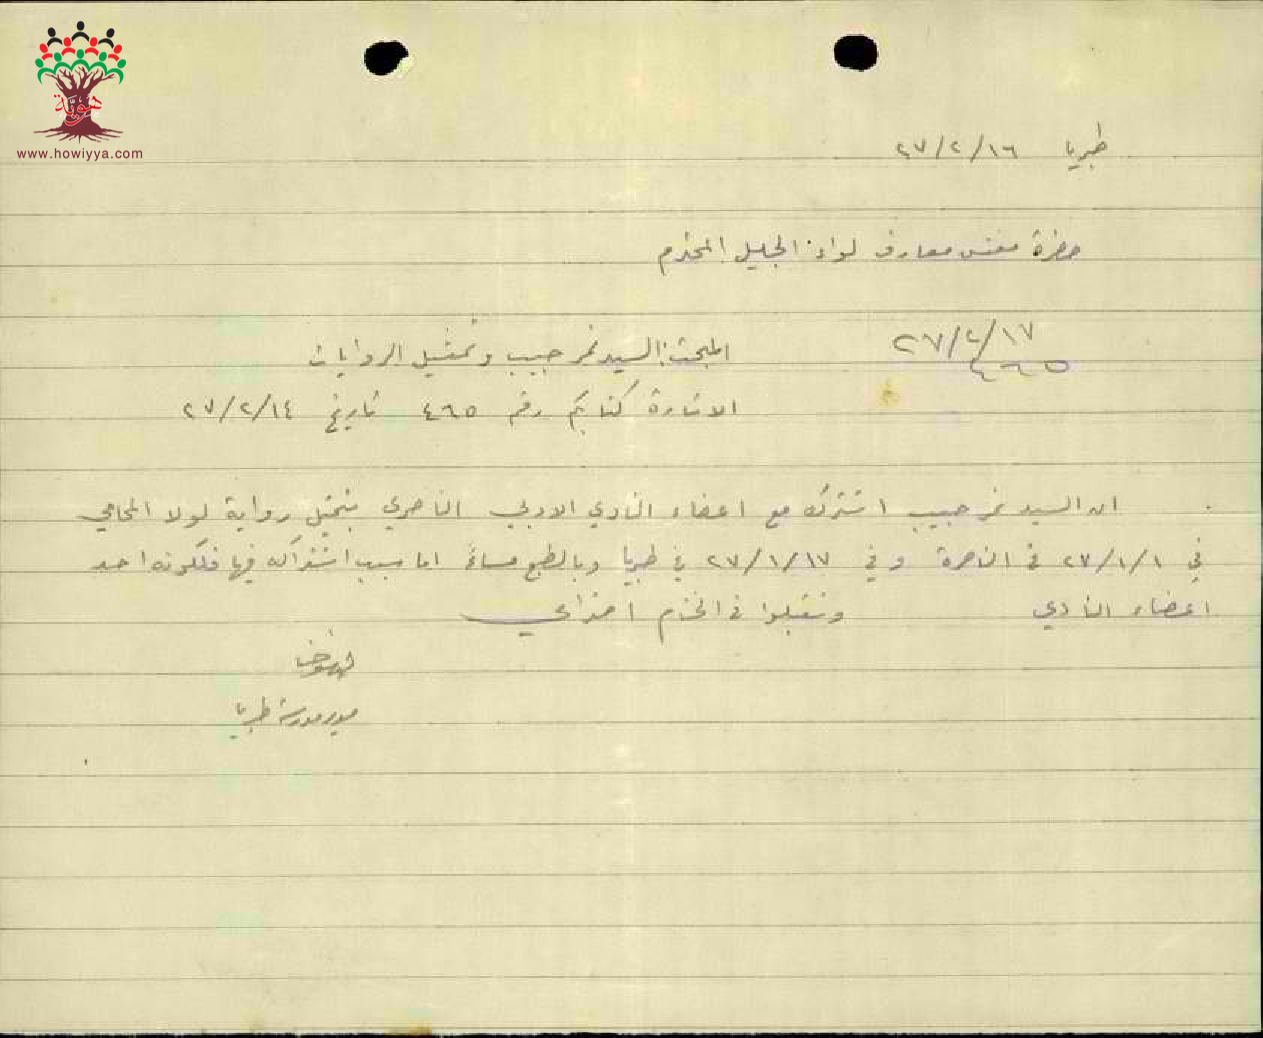 هوية
www.howiyya.com
طبريا ٢٧/٢/١٦
حضرة مفتش معارف لواء الجليل المحترم
٢٧/٢/١٧
٤٦٥
المبحث: السيد نمر حبيب وتمثيل الروايات
الاشارة كتابكم رقم ٤٦٥ تاريخ ٢٧/٢/١٤
ان السيد نمر حبيب اشترك مع اعضاء النادي الادبي الناصري بتمثيل رواية لولا المحامي
في ٢٧/١/١ في الناصرة و في ٢٧/١/١٧ في طبريا وبالطبع مساءً اما سبب اشتراكه فيها فلكونه احد
اعضاء النادي وتفضلوا في الختام احترامي
مدير مدرسة طبريا